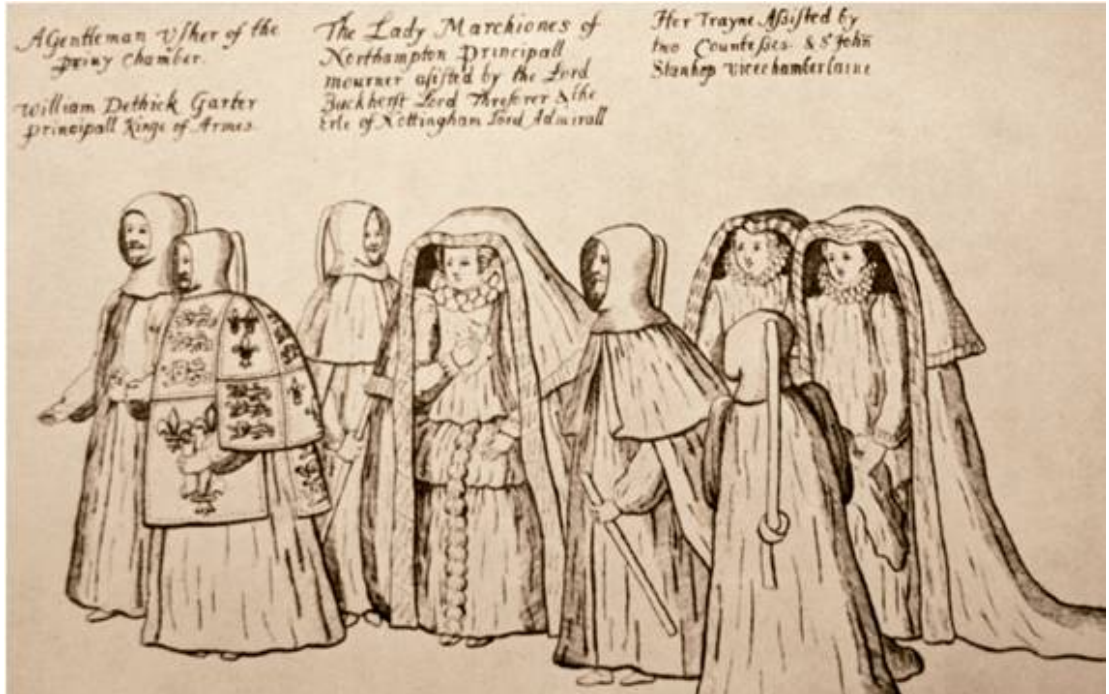 A Gentleman Vsher of the
priuy Chamber.
William Dethick Garter
principall Kinge of Armes
The Lady Marchiones of
Northampton Principall
mourner asisted by the Lord
Buckherst Lord Threforer & the
Erle of Nottingham Lord Admirall
Her Trayne Aſsiſted by
two Counteſses & Sʳ John
Stanhop vicechamberlaine